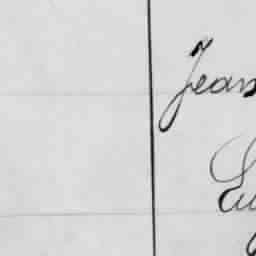 Jean
Eu